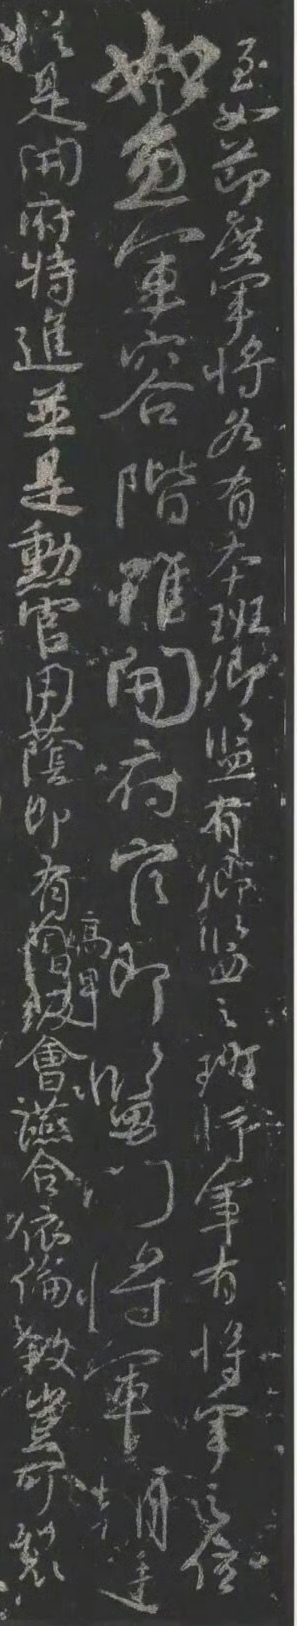 至如節度軍將各有本班卿監有卿監之班將軍有將軍之位
如魚軍容階雖開府官即監門將軍朝廷
縱是開府特進並是勳官用蔭即有高卑會讌合依倫敘豈可裂